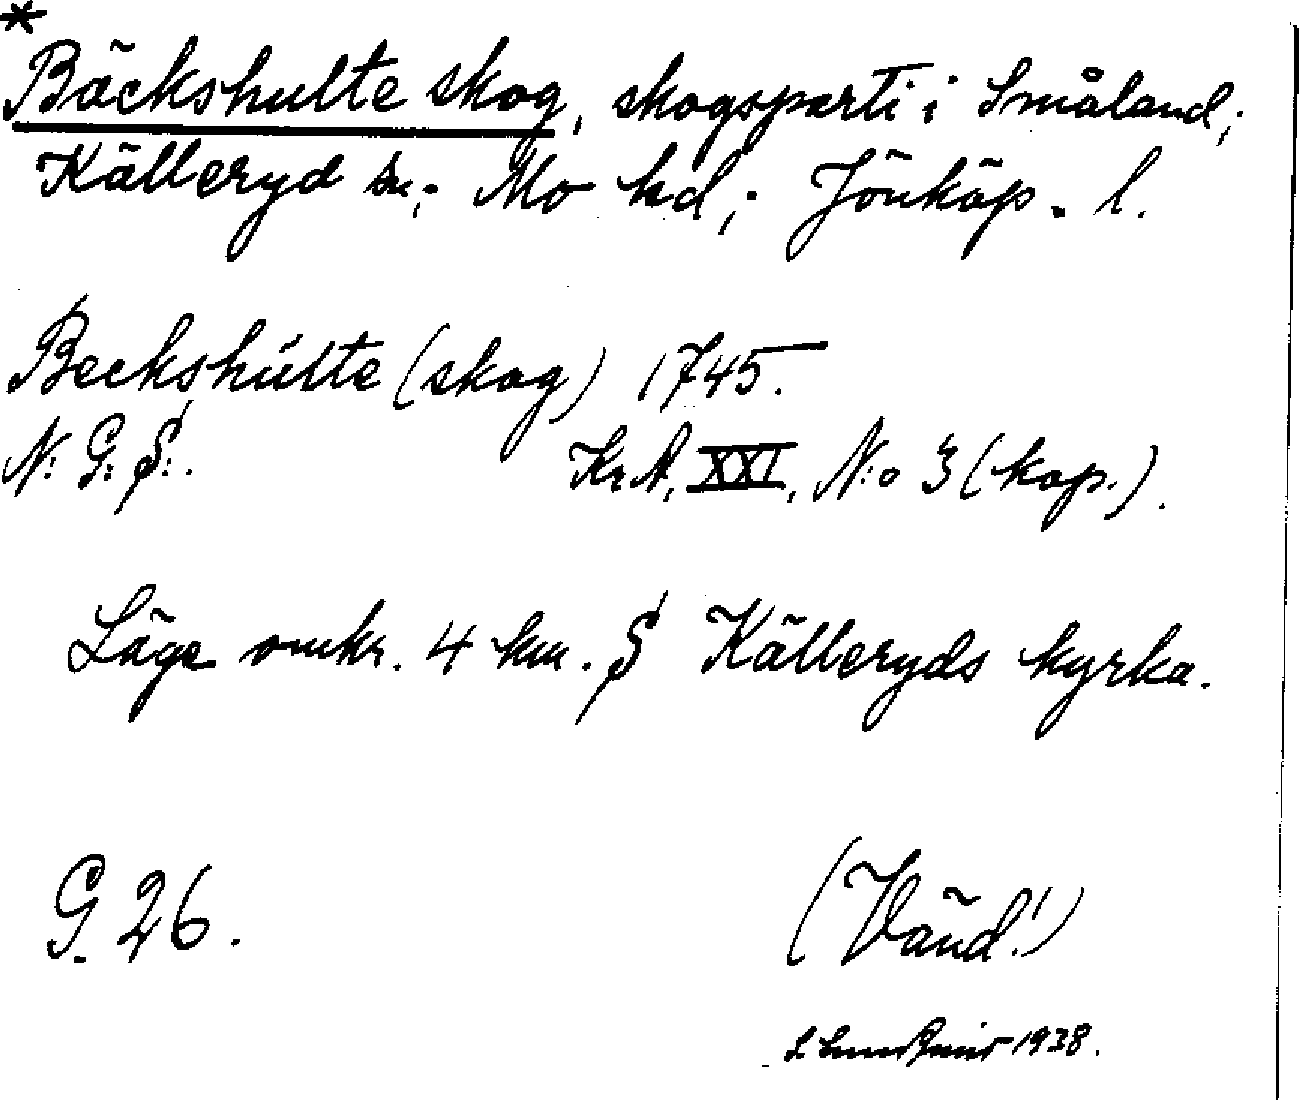 *
Bäckshulte skog, skogsparti i Småland;
Källeryd sn.; Mo hd.; Jönköp. l.
Beckshúlte (skog) 1745.
N: G: S:.
Kr. A. XXI, N:o 3 (kop.).
Läge omkr. 4 km. S Källeryds kyrka.
G. 26.
(Vänd!)
1938.